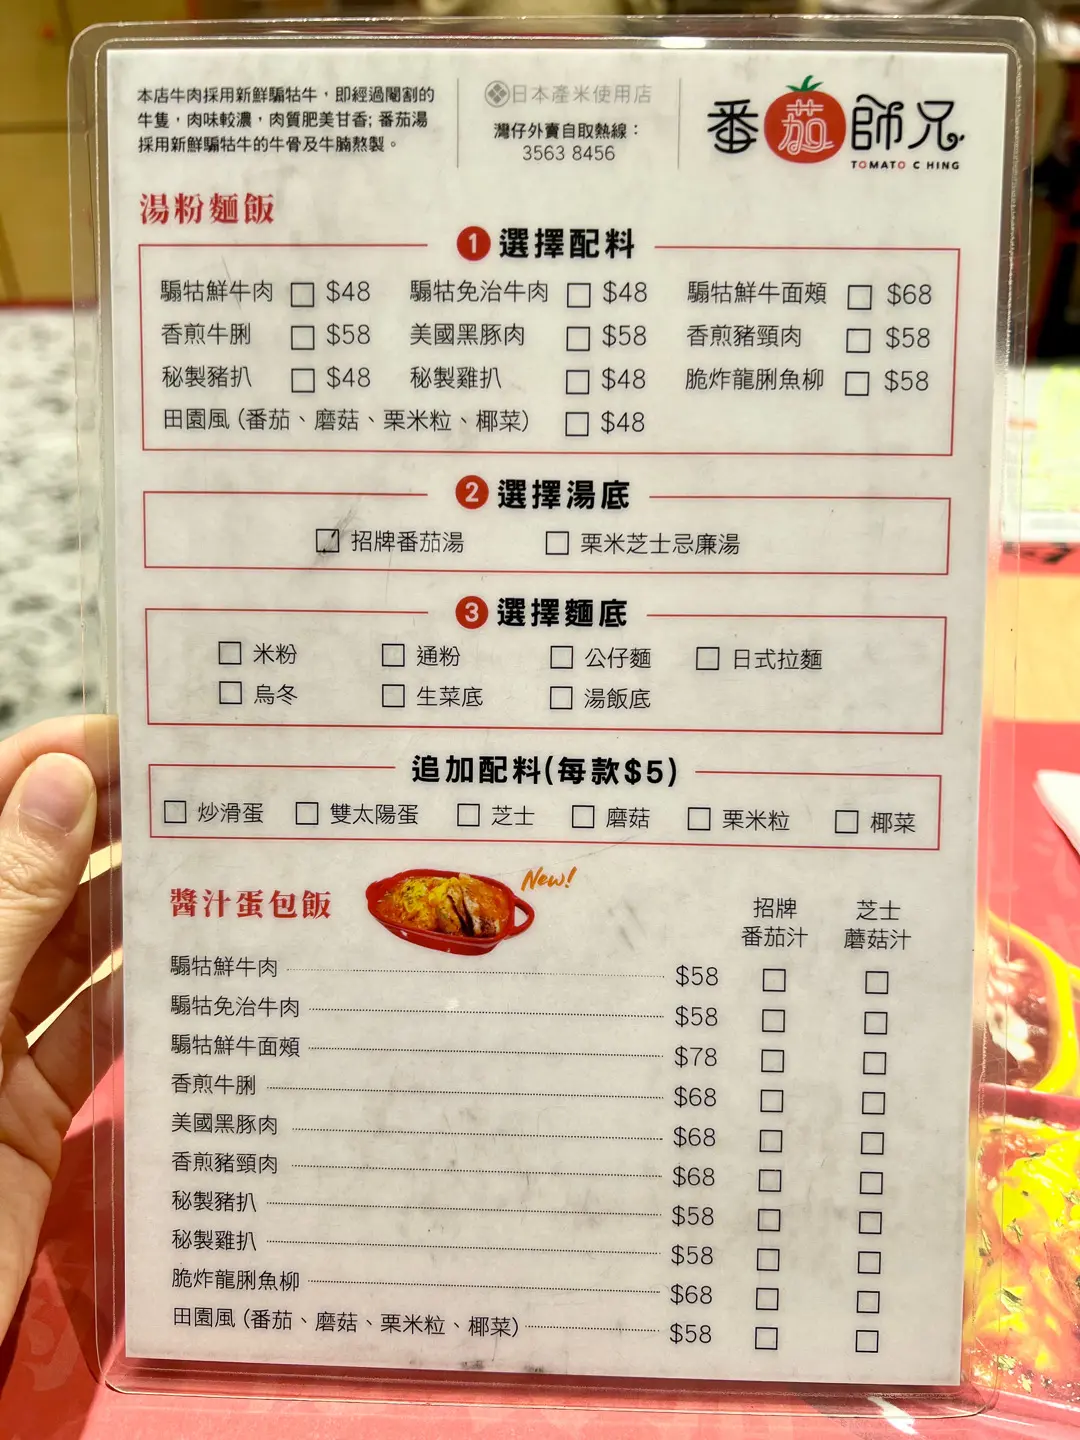 本店牛肉採用新鮮騸牯牛，即經過閹割的
牛隻，肉味較濃，肉質肥美甘香; 番茄湯
採用新鮮騸牯牛的牛骨及牛腩熬製。
日本產米使用店
灣仔外賣自取熱線：
3563 8456
番茄師兄
TOMATO CHING
湯粉麵飯
1 選擇配料
騸牯鮮牛肉 □ $48 騸牯免治牛肉 □ $48 騸牯鮮牛面頰 □ $68
香煎牛脷 □ $58 美國黑豚肉 □ $58 香煎豬頸肉 □ $58
秘製豬扒 □ $48 秘製雞扒 □ $48 脆炸龍脷魚柳 □ $58
田園風 (番茄、磨菇、栗米粒、椰菜) □ $48
2 選擇湯底
□ 招牌番茄湯 □ 栗米芝士忌廉湯
3 選擇麵底
□ 米粉 □ 通粉 □ 公仔麵 □ 日式拉麵
□ 烏冬 □ 生菜底 □ 湯飯底
追加配料(每款$5)
□ 炒滑蛋 □ 雙太陽蛋 □ 芝士 □ 磨菇 □ 栗米粒 □ 椰菜
醬汁蛋包飯
New!
招牌
番茄汁
芝士
蘑菇汁
騸牯鮮牛肉 $58 □ □
騸牯免治牛肉 $58 □ □
騸牯鮮牛面頰 $78 □ □
香煎牛脷 $68 □ □
美國黑豚肉 $68 □ □
香煎豬頸肉 $68 □ □
秘製豬扒 $58 □ □
秘製雞扒 $58 □ □
脆炸龍脷魚柳 $68 □ □
田園風 (番茄、磨菇、栗米粒、椰菜) $58 □ □